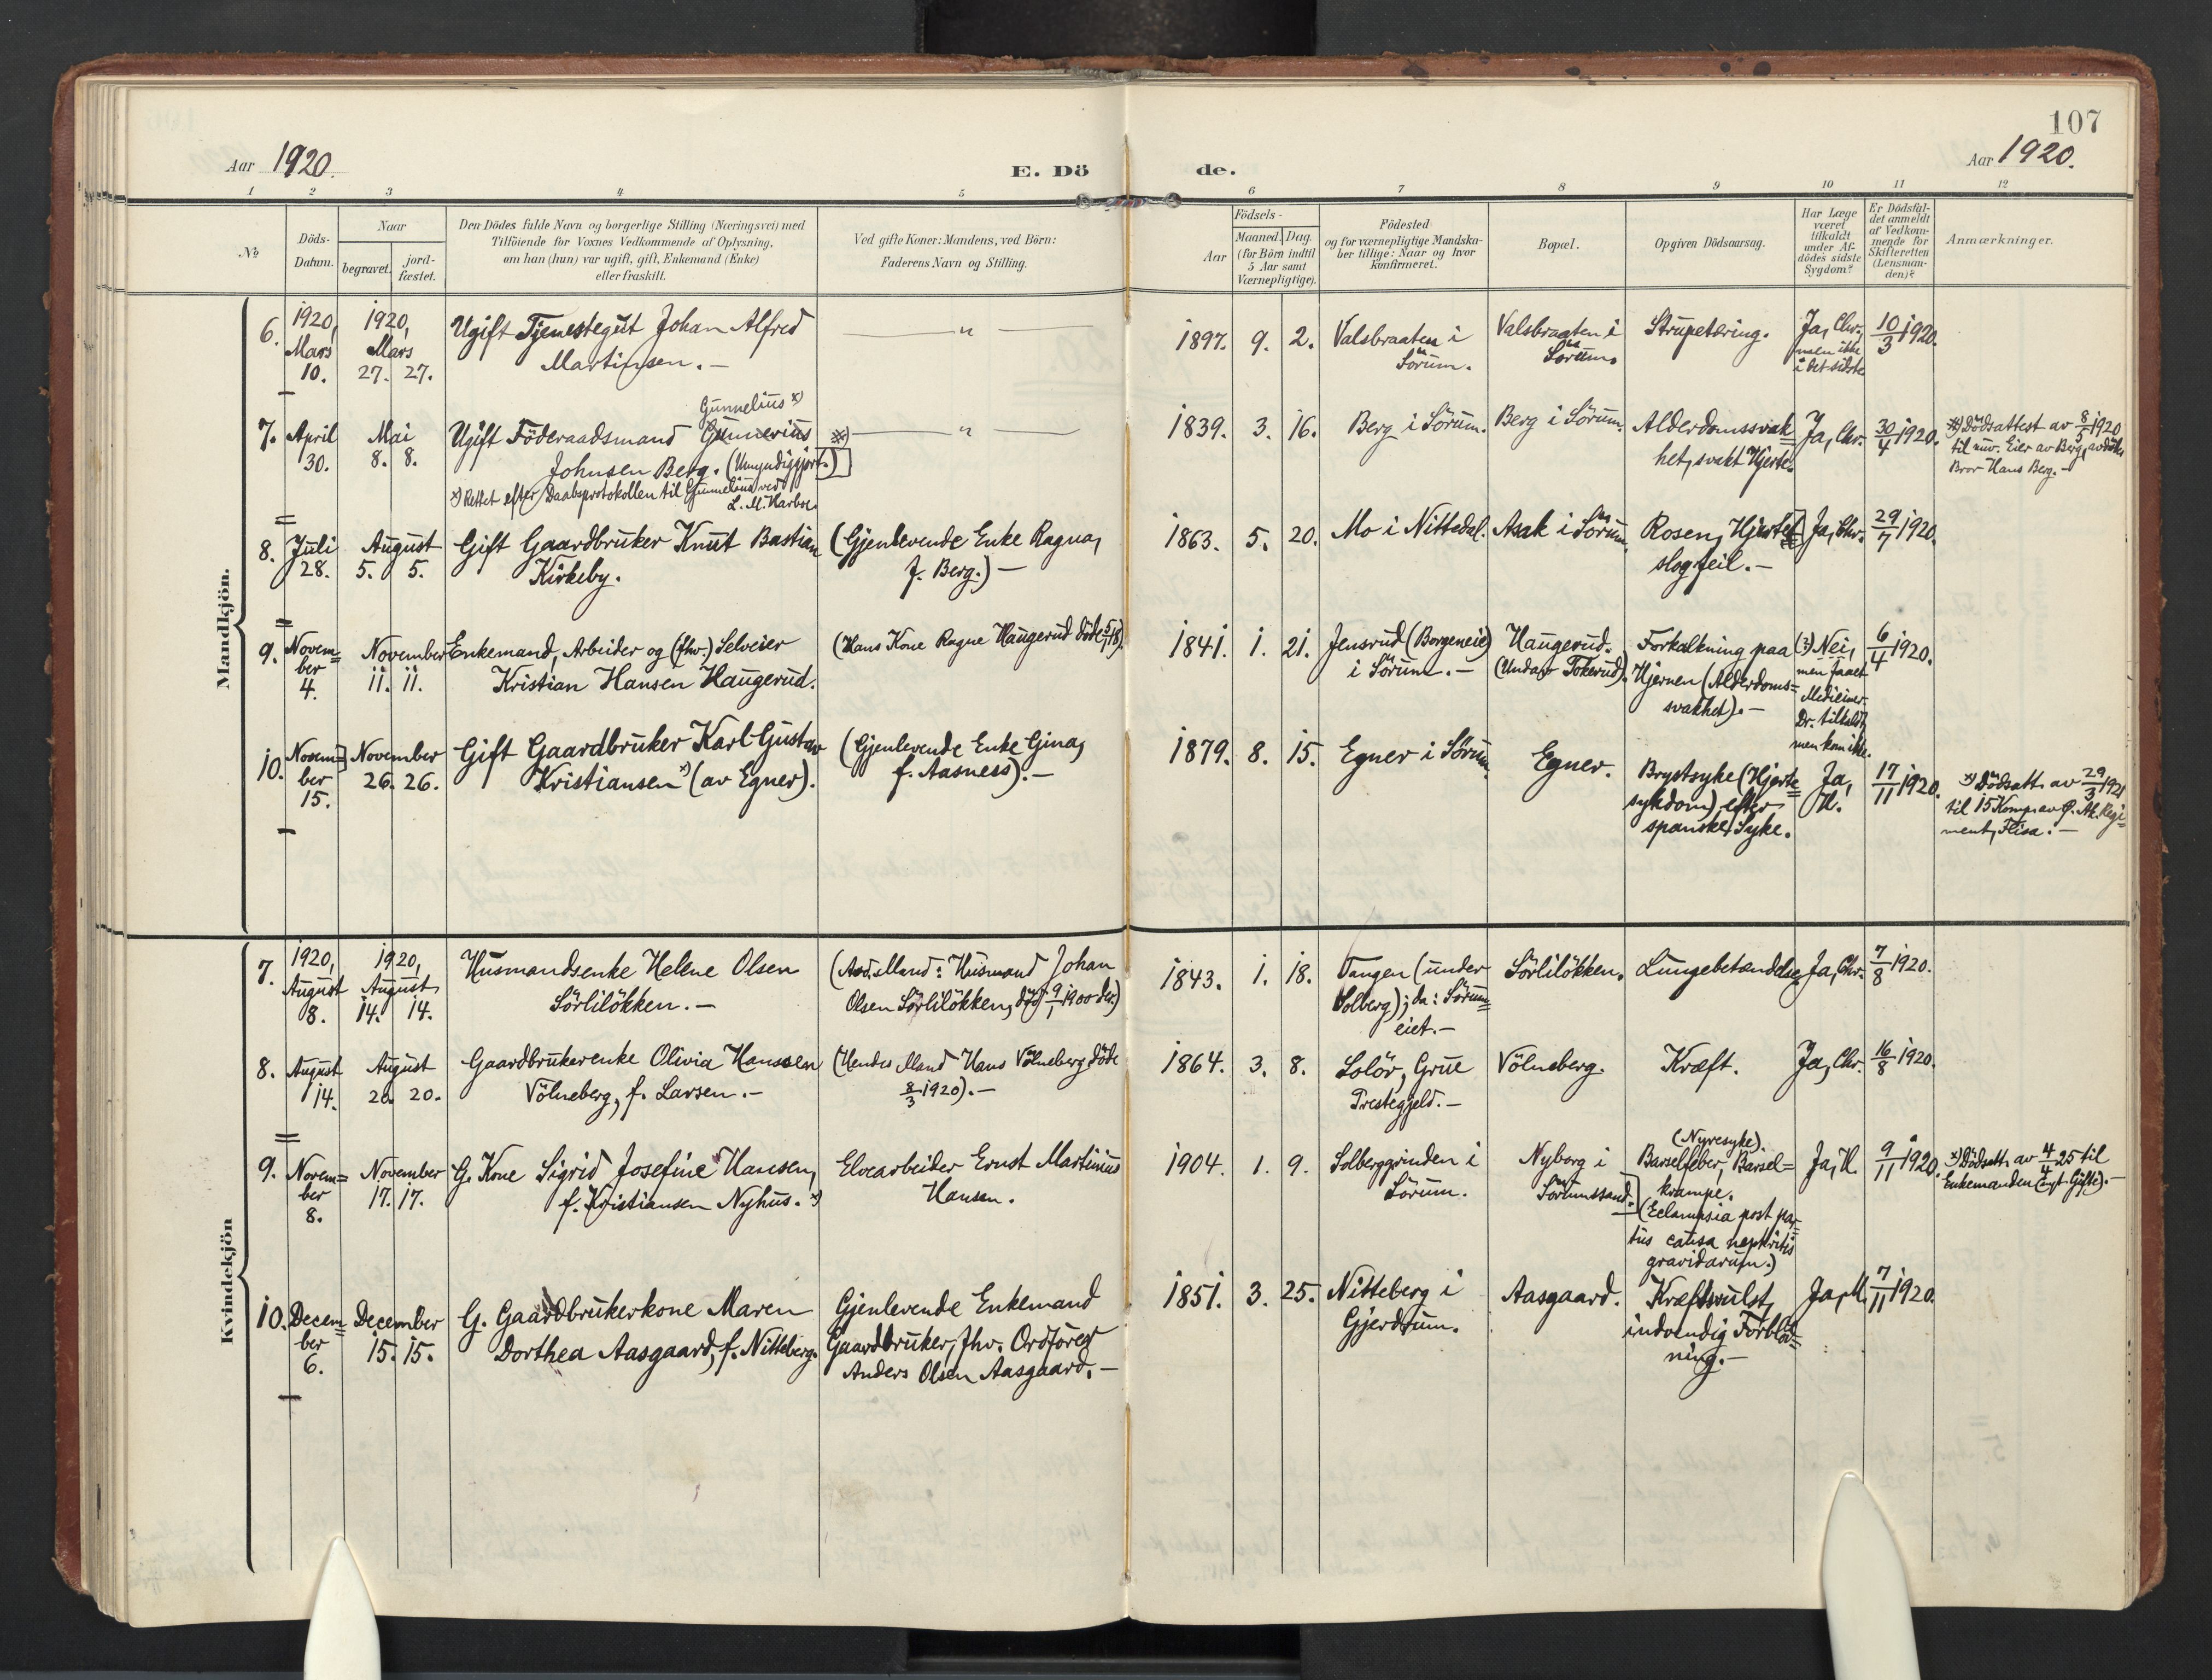 107
Aar 1920.
E. Dö
de.
Aar 1920.
1 2 3 4 5 6 7 8 9 10 11 12
No
Döds-
Datum.
Naar
begravet.
jord-
fæstet.
Den Dödes fulde Navn og borgerlige Stilling (Næringsvei) med
Tilföiende for Voxnes Vedkommende af Oplysning,
om han (hun) var ugift, gift, Enkemand (Enke)
eller fraskilt.
Ved gifte Koner: Mandens, ved Börn:
Faderens Navn og Stilling.
Födsels-
Aar
Maaned.
Dag.
(for Börn indtil
5 Aar samt
Værnepligtige).
Födested
og for værnepligtige Mandska-
ber tillige: Naar og hvor
konfirmeret.
Bopæl.
Opgiven Dödsaarsag.
Har Læge
været
tilkaldt
under Af-
dödes sidste
Sygdom?
Er Dödsfal-
det anmeldt
af Vedkom-
mende for
Skifteretten
(Lensman-
den)?
Anmærkninger.
Mandkjön.
6.
1920,
Mars
10.
1920,
Mars
27. 27.
Ugift Tjenestegut Johan Alfred
Martinsen. —
— " —
1897. 9. 2.
Valsbraaten i
Sörum.
Valsbraaten i
Sörum.
Strupetæring.
Ja, Chr.,
men ikke
i det sidste
10/3 1920.
7.
April
30.
Mai
8. 8.
Gunnelius x)
Ugift Föderaadsmand Gunnerius
Johnsen Berg. (Umyndiggjort.)
x) Rettet efter Daabsprotokollen til Gunnelius ved
L. M. Harboe.
x) — " —
1839. 3. 16.
Berg i Sörum.
Berg i Sörum.
Alderdomssvak=
het, svakt Hjerte.
Ja, Chr.
30/4 1920.
x) Dödsattest av 8/5 1920
til nuv. Eier av Berg, avdödes
Bror Hans Berg. —
8.
Juli
28.
August
5. 5.
Gift Gaardbruker Knut Bastian
Kirkeby.
(Gjenlevende Enke Ragna,
f. Berg.) —
1863. 5. 20.
Mo i Nittedal.
Asak i Sörum.
Rosen, Hjerte=
slag feil. —
Ja, Chr.
29/7 1920.
9.
Novem=
ber
4.
November
11. 11.
Enkemand, Arbeider og (fhv.) Selveier
Kristian Hansen Haugerud.
(Hans Kone Ragne Haugerud döde 5/1 18).
1841. 1. 21.
Jensrud (Borgeneie)
i Sörum. —
Haugerud.
(Under Tokerud).
Forkalkning paa
Hjernen (Alderdoms=
svakhet). —
(?) Nei,
men faaet
Mediciner.
Dr. tilkaldt,
men kom ikke.
6/4 1920.
10.
Novem=
ber
15.
November
26. 26.
Gift Gaardbruker Karl Gustav
Kristiansen x) (av Egner).
(Gjenlevende Enke Gina,
f. Aasness). —
1879. 8. 15.
Egner i Sörum.
Egner.
Brystsyke (Hjerte=
sykdom) efter
spanske Syke.
Ja,
H.
17/11 1920.
x) Dödsatt. av 29/3 1921
til 15 Komp. av Ö. Ak. Regi=
ment, Flisa. —
Kvindekjön
7.
1920,
August
8.
1920,
August
14. 14.
Husmandsenke Helene Olsen
Sörliløkken. —
(Avd. Mand: Husmand Johan
Olsen Sörliløkken, död 9/1 1900 der.)
1843. 1. 18.
Vangen (under
Solberg); da: Sörum=
eiet. —
Sörliløkken.
Lungebetændelse
Ja, Chr.
7/8 1920.
8.
August
14.
August
20. 20.
Gaardbrukerenke Olivia Hanssen
Völneberg, f. Larsen. —
(Hendes Mand Hans Völneberg döde
8/3 1920). —
1864. 3. 8.
Solör, Grue
Prestegjeld. —
Völneberg.
Kræft.
Ja, Chr.
16/8 1920.
9.
Novem=
ber
8.
November
17. 17.
G. Kone Sigrid Josefine Hansen,
f. Kristiansen Nyhus. x)
Elvearbeider Ernst Martinius
Hansen.
1904. 1. 9.
Solberggrinden i
Sörum.
Nyborg i
Sörumssand.
(Nyresyke).
Barselfeber, Barsel=
krampe.
(Eclampsia post par=
tus causa nephritis
gravidarum.)
Ja, H.
9/11 1920.
x) Dödsatt. av 4/4 25 til
Enkemanden (nyt Gifte). —
10.
Decem=
ber
6.
December
15. 15.
G. Gaardbrukerkone Maren
Dorthea Aasgaard, f. Nitteberg.
Gjenlevende Enkemand
Gaardbruker, fhv. Ordförer
Anders Olsen Aasgaard. —
1851. 3. 25.
Nitteberg i
Gjerdrum.
Aasgaard.
Kræftsvulst,
indvendig Forblö=
ning. —
Ja, M.
7/11 1920.